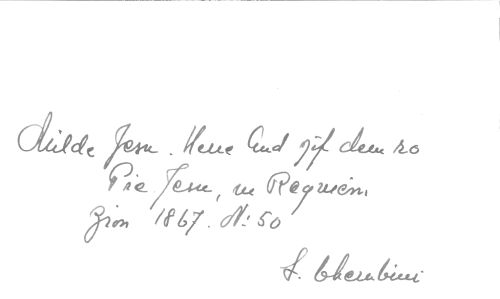 Milde Jesu. Herre Gud gif dem ro
Pie Jesu, ur Requiem.
Zion 1867. N: 50
L. Cherubini